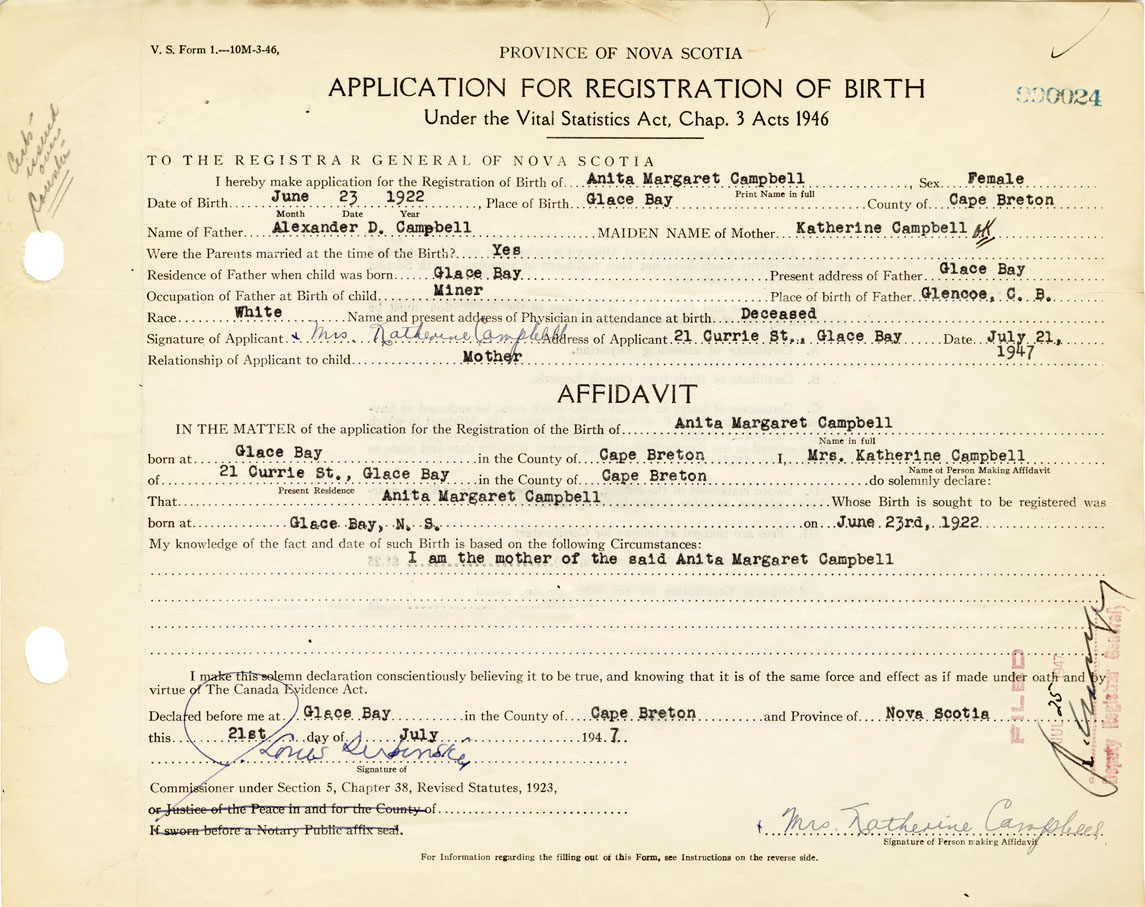 V. S. Form 1.---10M-3-46,
PROVINCE OF NOVA SCOTIA
APPLICATION FOR REGISTRATION OF BIRTH
Under the Vital Statistics Act, Chap. 3 Acts 1946
TO THE REGISTRAR GENERAL OF NOVA SCOTIA
I hereby make application for the Registration of Birth of Anita Margaret Campbell, Sex Female
Print Name in full
Date of Birth June 23 1922, Place of Birth Glace Bay County of Cape Breton
Month Date Year
Name of Father Alexander D. Campbell MAIDEN NAME of Mother Katherine Campbell OK
Were the Parents married at the time of the Birth? Yes
Residence of Father when child was born Glace Bay Present address of Father Glace Bay
Occupation of Father at Birth of child Miner Place of birth of Father Glencoe, C. B.
Race White Name and present address of Physician in attendance at birth Deceased
Signature of Applicant x Mrs. Katherine Campbell Address of Applicant 21 Currie St., Glace Bay Date July 21, 1947
Relationship of Applicant to child Mother
AFFIDAVIT
IN THE MATTER of the application for the Registration of the Birth of Anita Margaret Campbell
Name in full
born at Glace Bay in the County of Cape Breton I, Mrs. Katherine Campbell
Name of Person Making Affidavit
of 21 Currie St., Glace Bay in the County of Cape Breton do solemnly declare:
Present Residence
That Anita Margaret Campbell Whose Birth is sought to be registered was
born at Glace Bay, N. S. on June 23rd, 1922
My knowledge of the fact and date of such Birth is based on the following Circumstances:
I am the mother of the said Anita Margaret Campbell
I make this solemn declaration conscientiously believing it to be true, and knowing that it is of the same force and effect as if made under oath and by
virtue of The Canada Evidence Act.
Declared before me at Glace Bay in the County of Cape Breton and Province of Nova Scotia
this 21st day of July 1947.
Signature of
Commissioner under Section 5, Chapter 38, Revised Statutes, 1923,
or Justice of the Peace in and for the County of
If sworn before a Notary Public affix seal.
x Mrs. Katherine Campbell
Signature of Person making Affidavit
For Information regarding the filling out of this Form, see Instructions on the reverse side.
FILED
JUL 25 1947
Deputy Registrar General